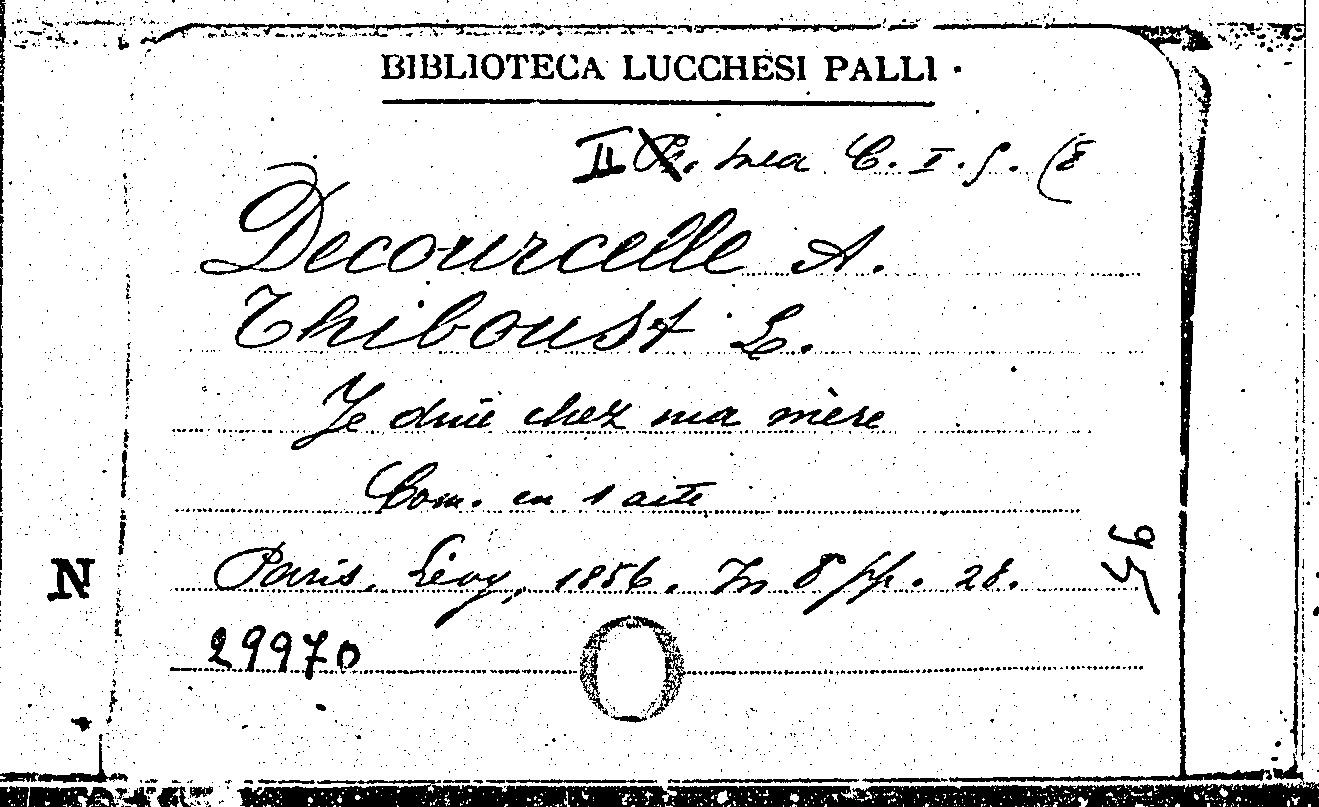 BIBLIOTECA LUCCHESI PALLI
II sea C. I. 9. (8
Decourcelle A.
Thiboust L.
Je dine chez ma mère
Com. en 1 acte
Paris, Lévy, 1856. In 8° pp. 28.
N
29970